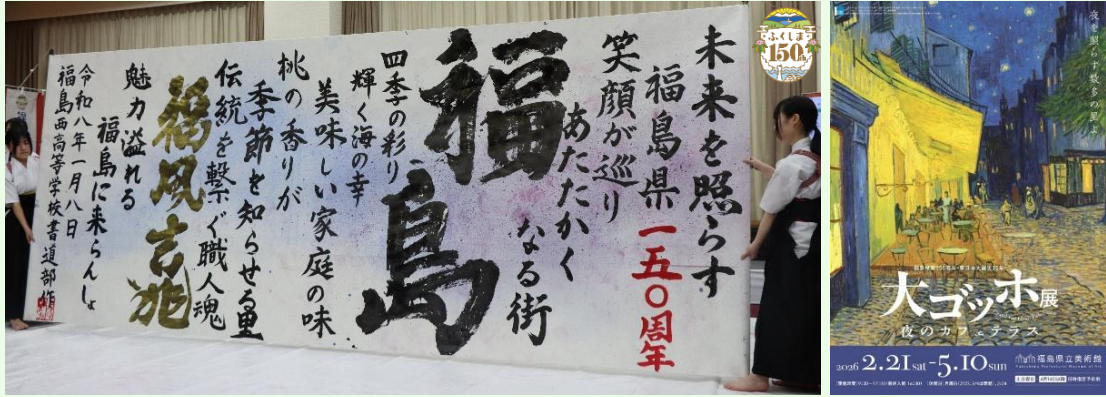 未来を照らす
福島県一五〇周年
笑顔が巡り
あたたかく
なる街
福島
四季の彩り
輝く海の幸
美味しい家庭の味
桃の香りが
季節を知らせる里
伝統を繋ぐ職人魂
福風吉兆
魅力溢れる
福島に来らんしょ
令和八年一月八日
福島西高等学校書道部作
ふくしま
150年
大ゴッホ展
夜のカフェテラス
2026 2.21sat-5.10sun
福島県立美術館
Fukushima Prefectural Museum of Art